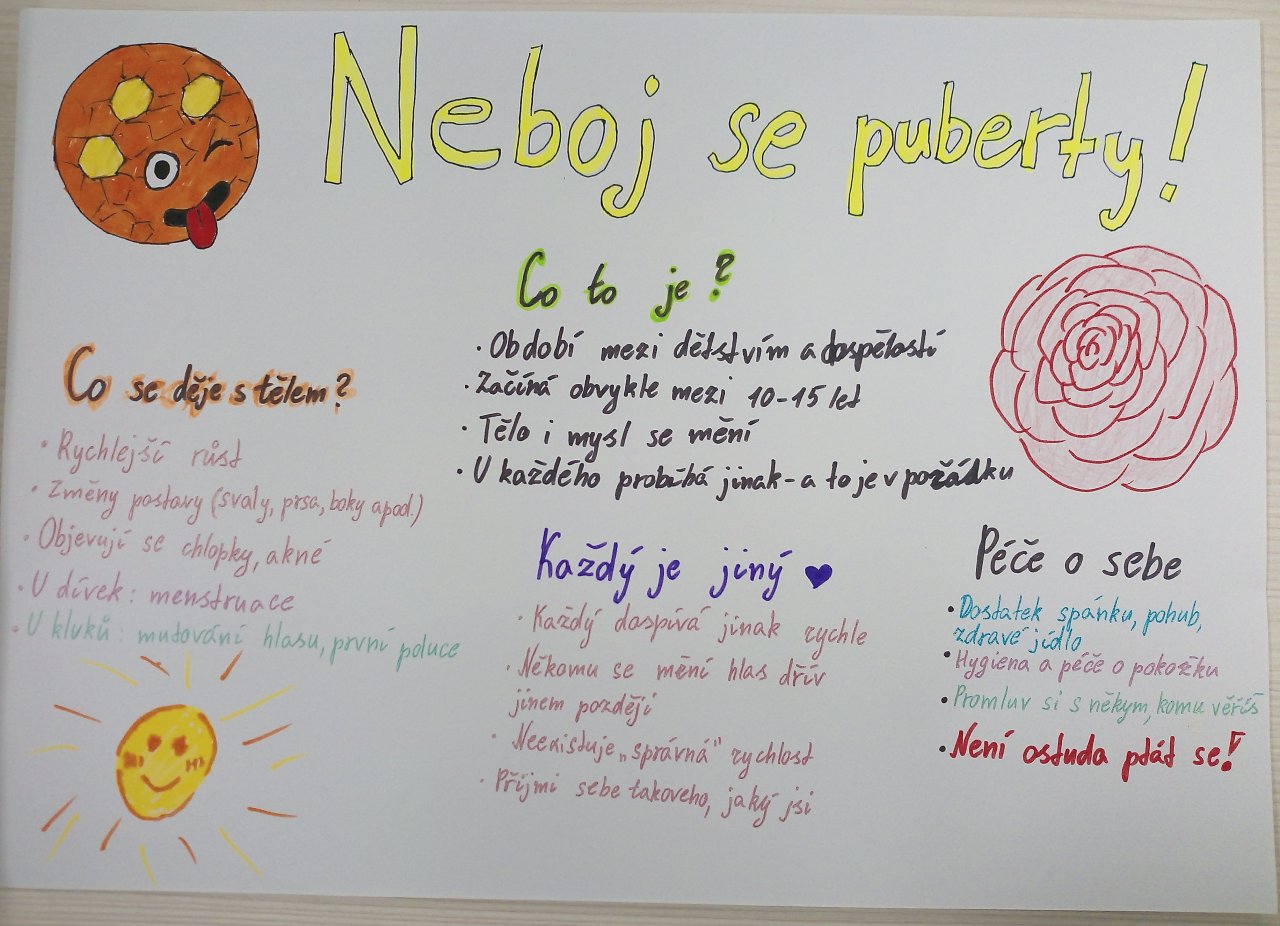 Neboj se puberty!
Co to je?
· Období mezi dětstvím a dospělostí
· Začíná obvykle mezi 10-15 let
· Tělo i mysl se mění
· U každého probíhá jinak - a to je v pořádku
Co se děje s tělem?
· Rychlejší růst
· Změny postavy (svaly, prsa, boky apod.)
· Objevují se chlopky, akné
· U dívek: menstruace
· U kluků: mutování hlasu, první poluce
Každý je jiný
· Každý dospívá jinak rychle
· Někomu se mění hlas dřív
jinem později
· Neexistuje „správná" rychlost
· Přijmi sebe takoveho, jaký jsi
Péče o sebe
· Dostatek spánku, pohub,
zdravé jídlo
· Hygiena a péče o pokožku
· Promluv si s někym, komu věříš
· Není ostuda ptát se!